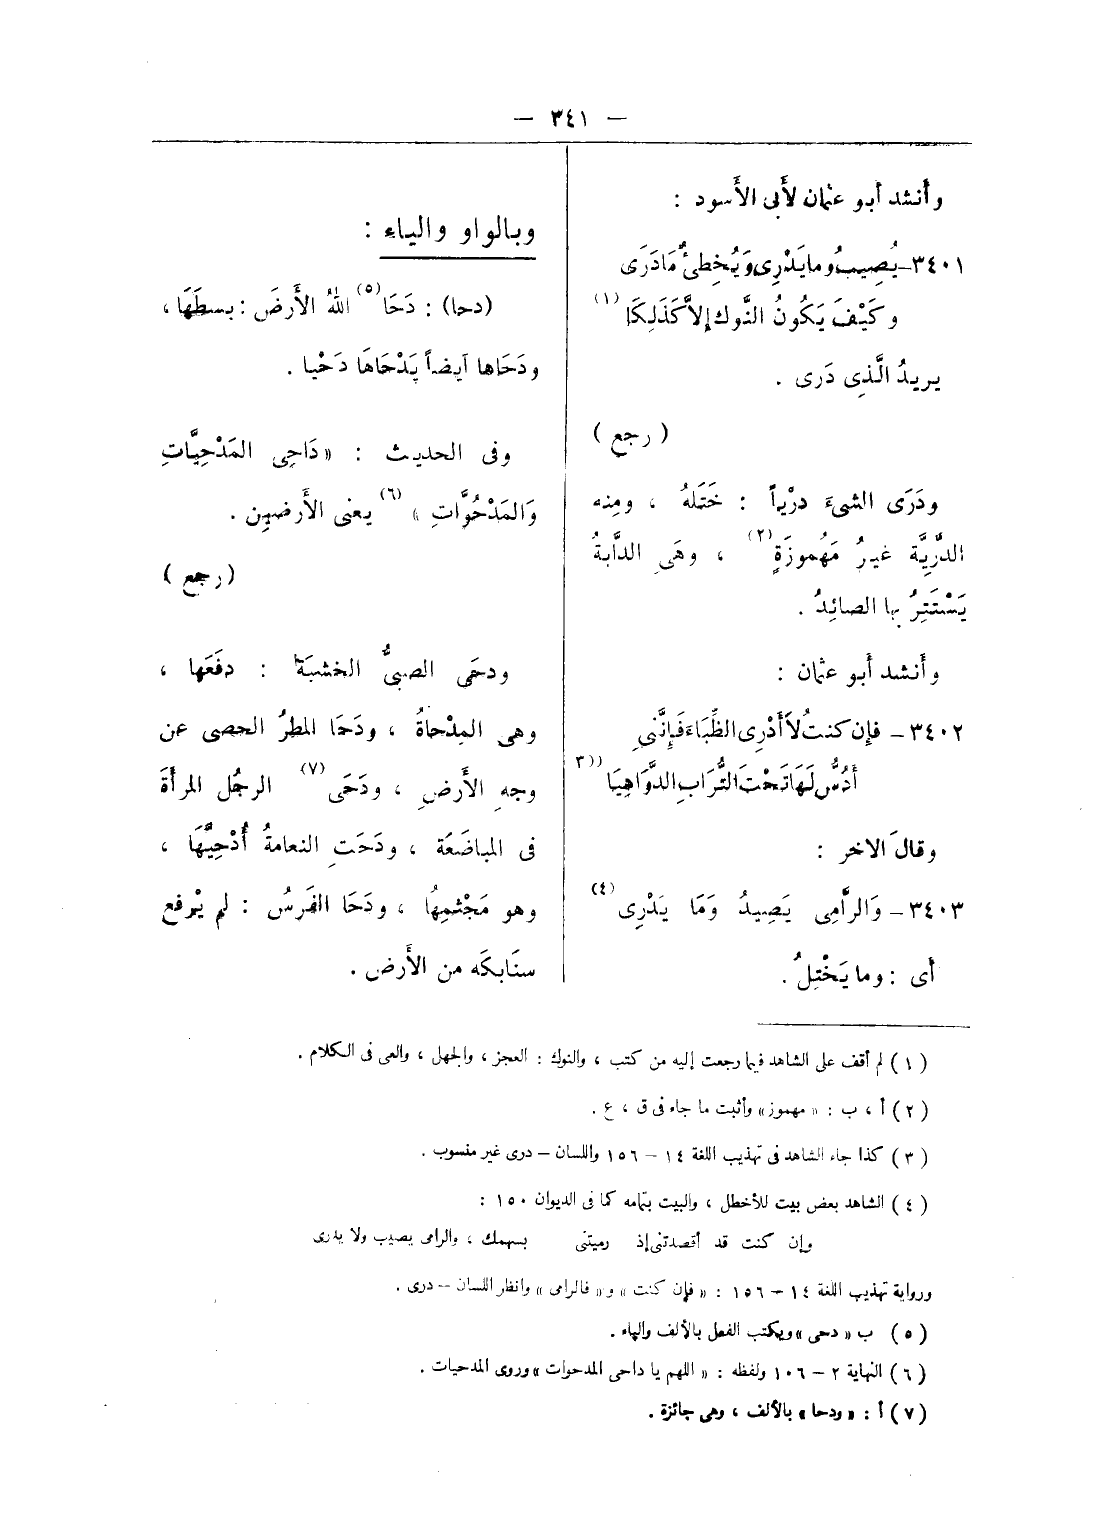 — ٣٤١ —
وأَنشد أبو عثمان لأَبى الأَسود :
٣٤٠١–يُصِيبُ وما يَدْرِى وَيُخطِئُ مَا دَرَى
وكَيْفَ يَكُونُ النَّوك إلاَّ كَذَلِكَا (١)
يريدُ الَّذِى دَرى .
( رجع )
ودَرَى الشىءَ درْياً : خَتَلهُ ، ومنه
الدَّرِيَّة غيرُ مَهْموزَةٍ (٢) ، وهَىِ الدابةُ
يَسْتَتِرُ بها الصائِدُ .
وأَنشد أَبو عثمان :
٣٤٠٢ – فإِن كنتُ لاَ أَدْرِى الظِّبَاءَ فَإِنَّنىِ
أَدُسُّ لَهَا تَحْتَ التُّرَابِ الدَّوَاهِيَا (٣)
وقالَ الاخر :
٣٤٠٣ – وَالرَّامِى يَصِيدُ وَمَا يَدْرِى (٤)
أى : وما يَخْتِلُ .
وبالواو والياء :
(دحا) : دَحَا (٥) اللهُ الأَرضَ : بسطَهَا ،
ودَحَاها آيضاً يَدْحَاهَا دَحْيا .
وفى الحديث : «دَاحِى المَدْحِيَّاتِ
وَالمَدْحُوَّاتِ » (٦) يعنى الأَرضين .
( رجع )
ودحَى الصبىُّ الخشبَة : دفَعَها ،
وهى المِدْحاةُ ، ودَحَا المطرُ الحصى عن
وجهِ الأَرضِ ، ودَحَى (٧) الرجُل المرأَةَ
فى المباضَعَة ، ودَحَتِ النعامةُ أُدْحِيَّهَا ،
وهو مَجْثمِهُا ، ودَحَا الفَرَسُ : لم يْرفع
سنَابكَه من الأَرض .
( ١ ) لم أقف على الشاهد فيما رجعت إليه من كتب ، والنوك : العجز ، والجهل ، والعى فى الكلام .
( ٢ ) أ ، ب : « مهموز» وأثبت ما جاء فى ق ، ع .
( ٣ ) كذا جاء الشاهد فى تهذيب اللغة ١٤ – ١٥٦ واللسان – درى غير منسوب .
( ٤ ) الشاهد بعض بيت للأخطل ، والبيت بتمامه كما فى الديوان ١٥٠ :
وإن كنت قد أقصدتنى إذ رميتنى بسهمك ، والرامى يصيب ولا يدرى
ورواية تهذيب اللغة ١٤ – ١٥٦ : « فإن كنت » و« فالرامى » وانظر اللسان – درى .
( ٥ ) ب « دحى » ويكتب الفعل بالألف والياء .
( ٦ ) النهاية ٢ – ١٠٦ ولفظه : « اللهم يا داحى المدحوات » وروى المدحيات .
( ٧ ) أ : « ودحا » بالألف ، وهى جائزة .